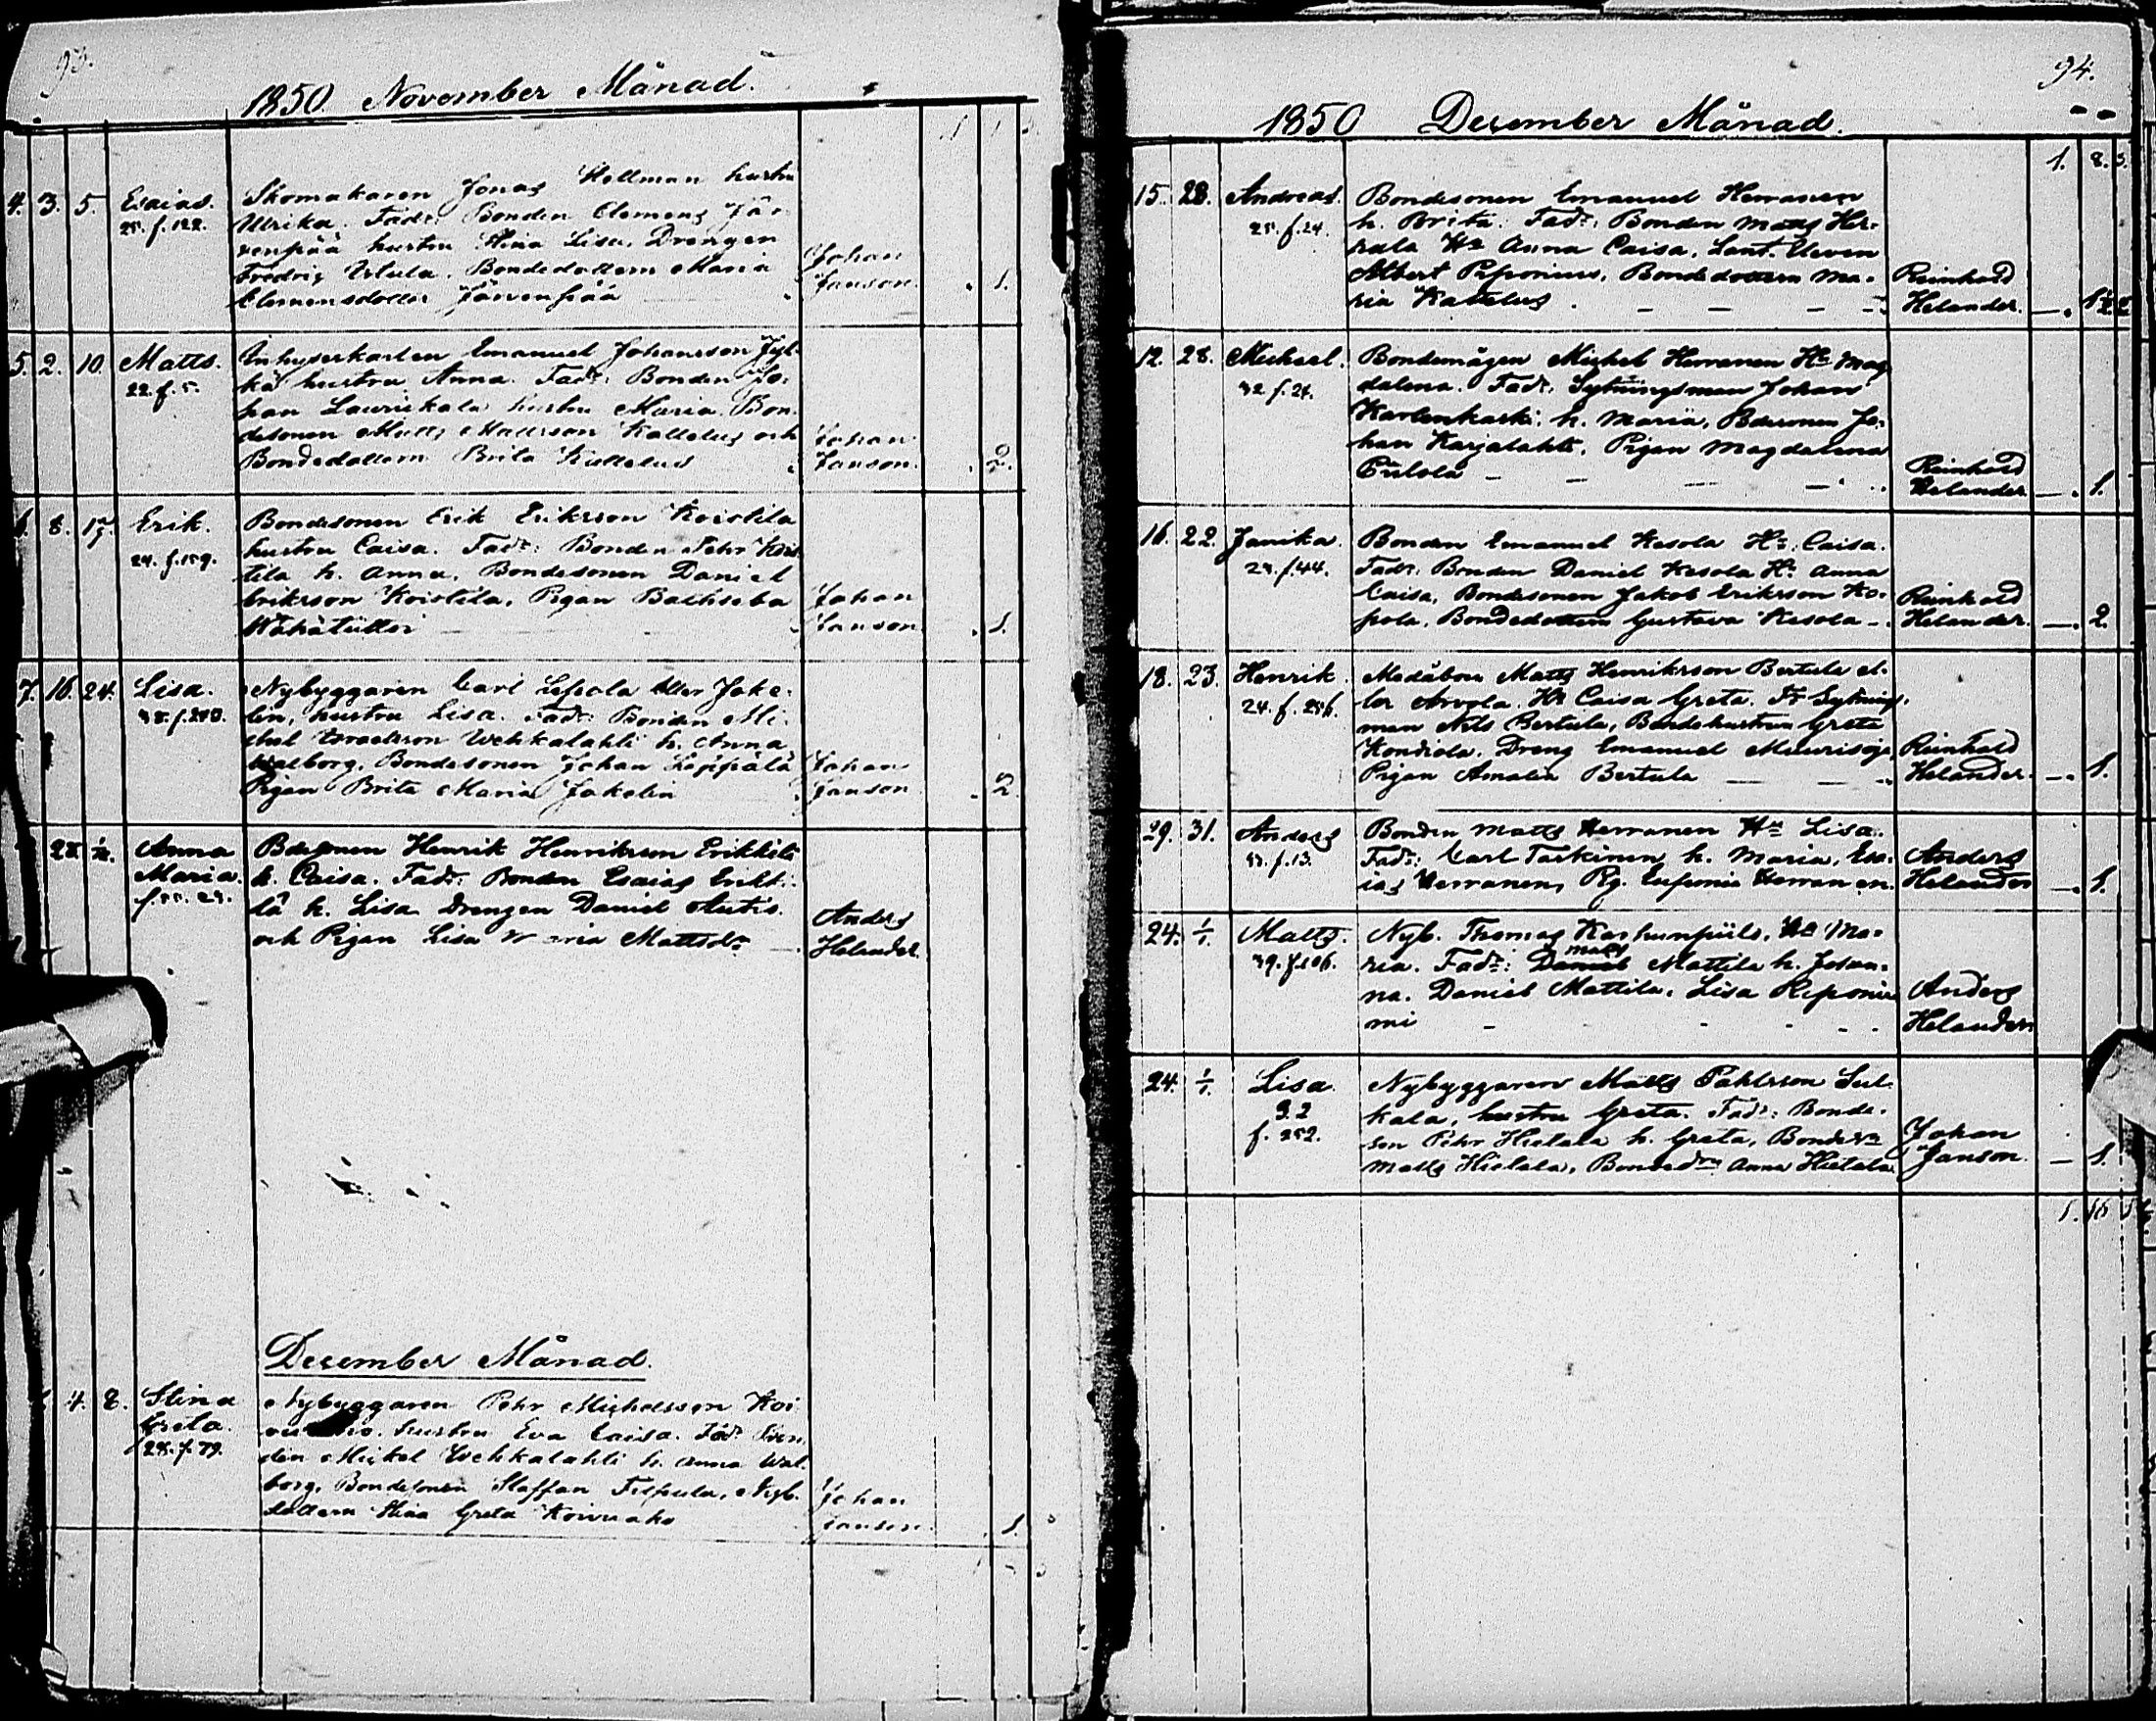 93.
1850 November Månad.
4. 3. 5. Esaias. Skomakaren Jonas Hellman hustru
25. f. 122. Ulrika. Fadr: Bonden Clemens Jär-
venpää hustru Stina Lisa. Drengen
Fredrig Bondedottern Maria
Clemensdotter Järvenpää
Johan
Janson. 1.
5. 2. 10. Matts. Inhyseskarlen Emanuel Johansson Jyl-
22. f. 5. kä hustru Anna. Fadr: Bonden Jo-
han Laurickala hustru Maria. Bon-
desonen Matts Mattsson Kattelus och
Bondedottern Brita Kattelus
Johan
Janson. 2.
6. 8. 17. Erik. Bondesonen Erik Eriksson Koistila
24. f. 159. hustru Caisa. Fadr: Bonden Pehr Kois-
tila h. Anna, Bondesonen Daniel
Eriksson Koistila, Pigan Bathseba
Johan
Janson. 1.
7. 16. 24. Lisa. Nybyggaren Carl Lepola eller Jake-
lin, hustru Lisa. Fadr: Bonden Mi-
chel Wehkalahti h. Anna
Walborg. Bondesonen Johan Leppälä
Pigan Brita Maria Jakelin
Johan
Janson. 2.
Anna Bdesonen Henrik Henriksson Erikkilä
Maria. h. Caisa. Fadr: Bonden Esaias Erikki-
lä h. Lisa Drengen Daniel Antis.
och Pigan Lisa Maria Mattsdr
Anders
Helander.
December Månad.
4. 8. Stina Nybyggaren Pehr Michelsson Koi-
Greta. hustru Eva Caisa. Fadr:
28. f. 79. Mickel Wehkalahti h. Anna Wal-
borg, Bondesonen Staffan Filpula, Nyb.
dottern Stina Greta Koivuaho
Johan
Janson. 1.
94.
1850 December Månad.
1. 8.
15. 28. Andreas. Bondesonen Emanuel Herranen
25. f. 24. h. Brita. Fadr: Bonden Matts Her-
rala Hu Anna Caisa, Lant. Eleven
Albert Peponius, Bondedottern Ma-
ria Kattelus
Reinhold
Helander.
12. 28. Michael. Bondemågen Michel Herranen Hu Mag-
32 f. 24. dalena. Fadr: Sytningsman Johan
Karlenkaski, h. Maria, Bdesonen Jo-
han Karjalahti, Pigan Magdalena
Piilola
Reinhold
Helander 1.
16. 22. Janika. Bonden Emanuel Kesola Hu: Caisa.
Fadr: Bonden Daniel Kesola Hu Anna
Caisa, Bondesonen Jakob Eriksson Ko-
pola, Bondedottern Gustava Kesola
Reinhold
Helander. 2.
18. 23. Henrik. Medåboen Matts Henriksson Bertula el-
24. f. 256. ler Arvola. Hu Caisa Greta. Fr Sytnings-
man Nils Bertula, Bondehustrun Greta
Kondiola. Dreng Emanuel
Pigan Amalia Bertula
Reinhold
Helander. 1.
29. 31. Anders Bonden Matts Herranen Hu Lisa.
f. 13. Fadr: Carl Taskinen h. Maria, Esa-
ias Herranen, Pig. Eufemia Herranen.
Anders
Helander 1.
24. 1/1. Matts. Nyb. Thomas Karhunpiilo, Hu Ma-
39. f. 106. ria. Fadr: Daniel Matts Mattila h. Johan-
na. Daniel Mattila. Lisa Reponie-
mi
Anders
Helander
24. 1/1. Lisa. Nybyggaren Matts Påhlsson Sul-
32 kala, hustru Greta. Fadr: Bonde-
f. 252. son Pehr Hietala h. Greta, Bondesn
Matts Hietala, Bondedrn Anna Hietala
Johan
Janson. 1.